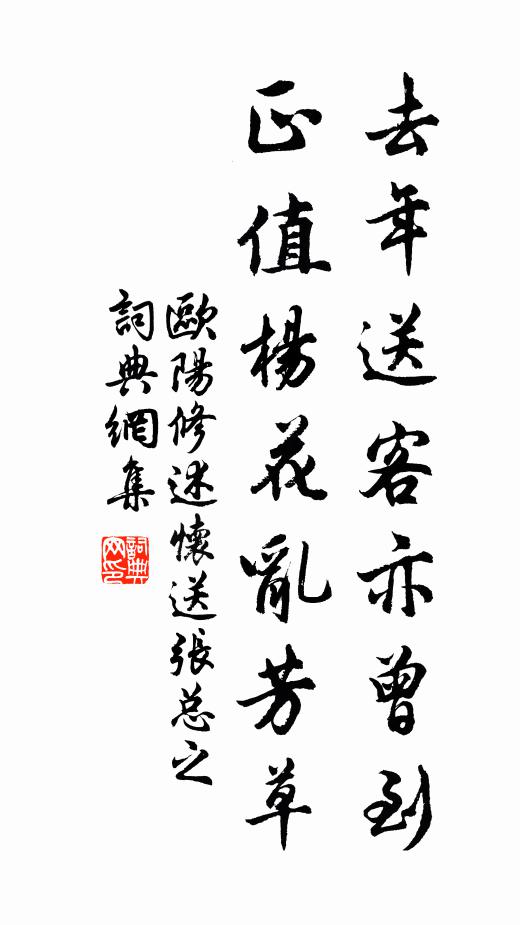 去年送客亦曾到
正值楊花亂芳草
歐陽修述懷送張总之
詞典網集
詞典网印